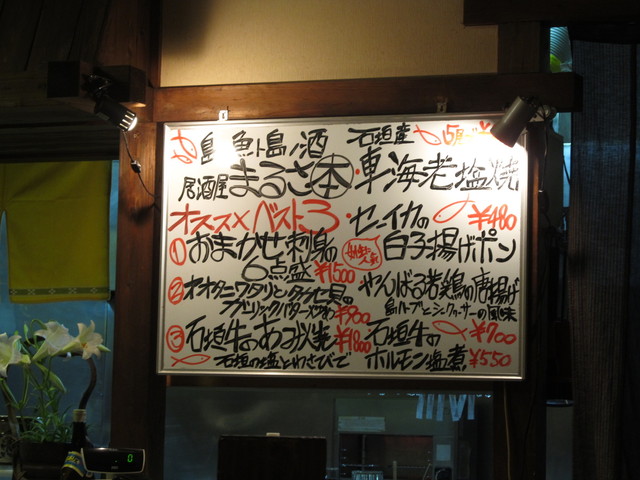 島 魚ト島ノ酒
居酒屋 まるさ本
オススメベスト3
① おまかせ刺身の
6点盛 ¥1500
② オオタニワタリとタカセ貝の
ガーリックバター炒め ¥900
③ 石垣牛のあぶり焼 ¥1800
石垣の塩とわさびで
石垣産
・車海老塩焼
・セーイカの ¥480
白子揚げポン
やんばる若鶏の唐揚げ
島ハーブとシークヮーサーの風味
¥700
石垣牛の
ホルモン塩煮 ¥550
0